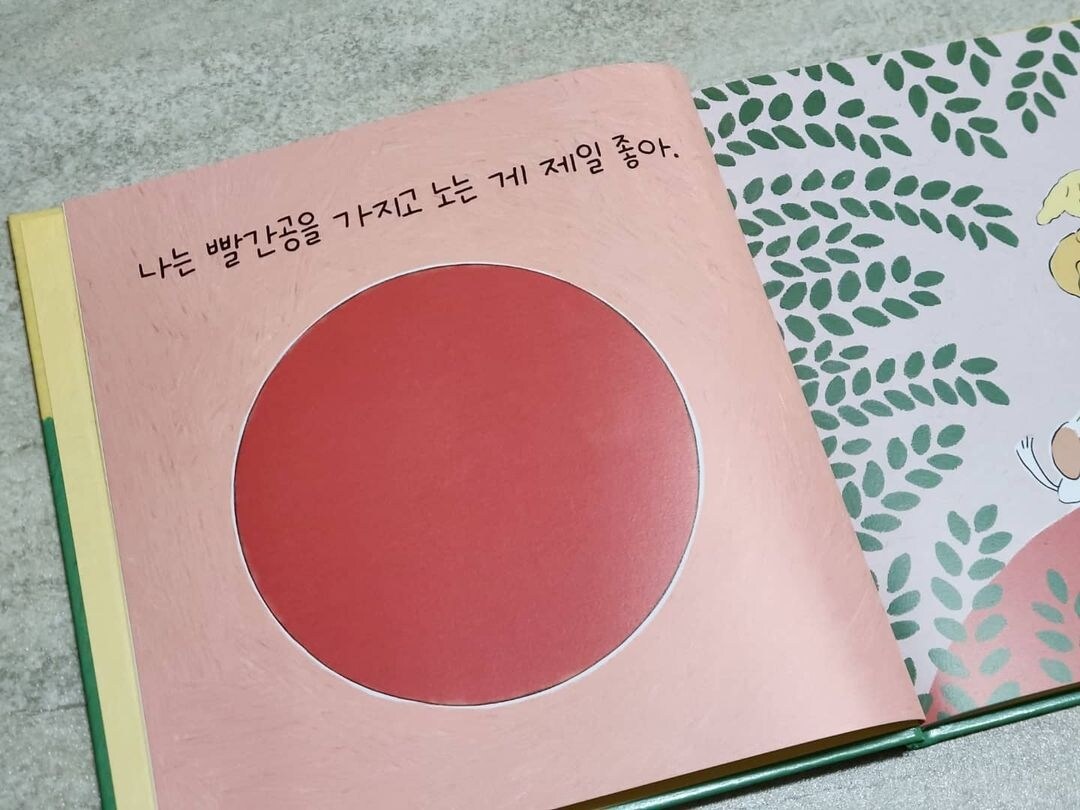 나는 빨간공을 가지고 노는 게 제일 좋아.